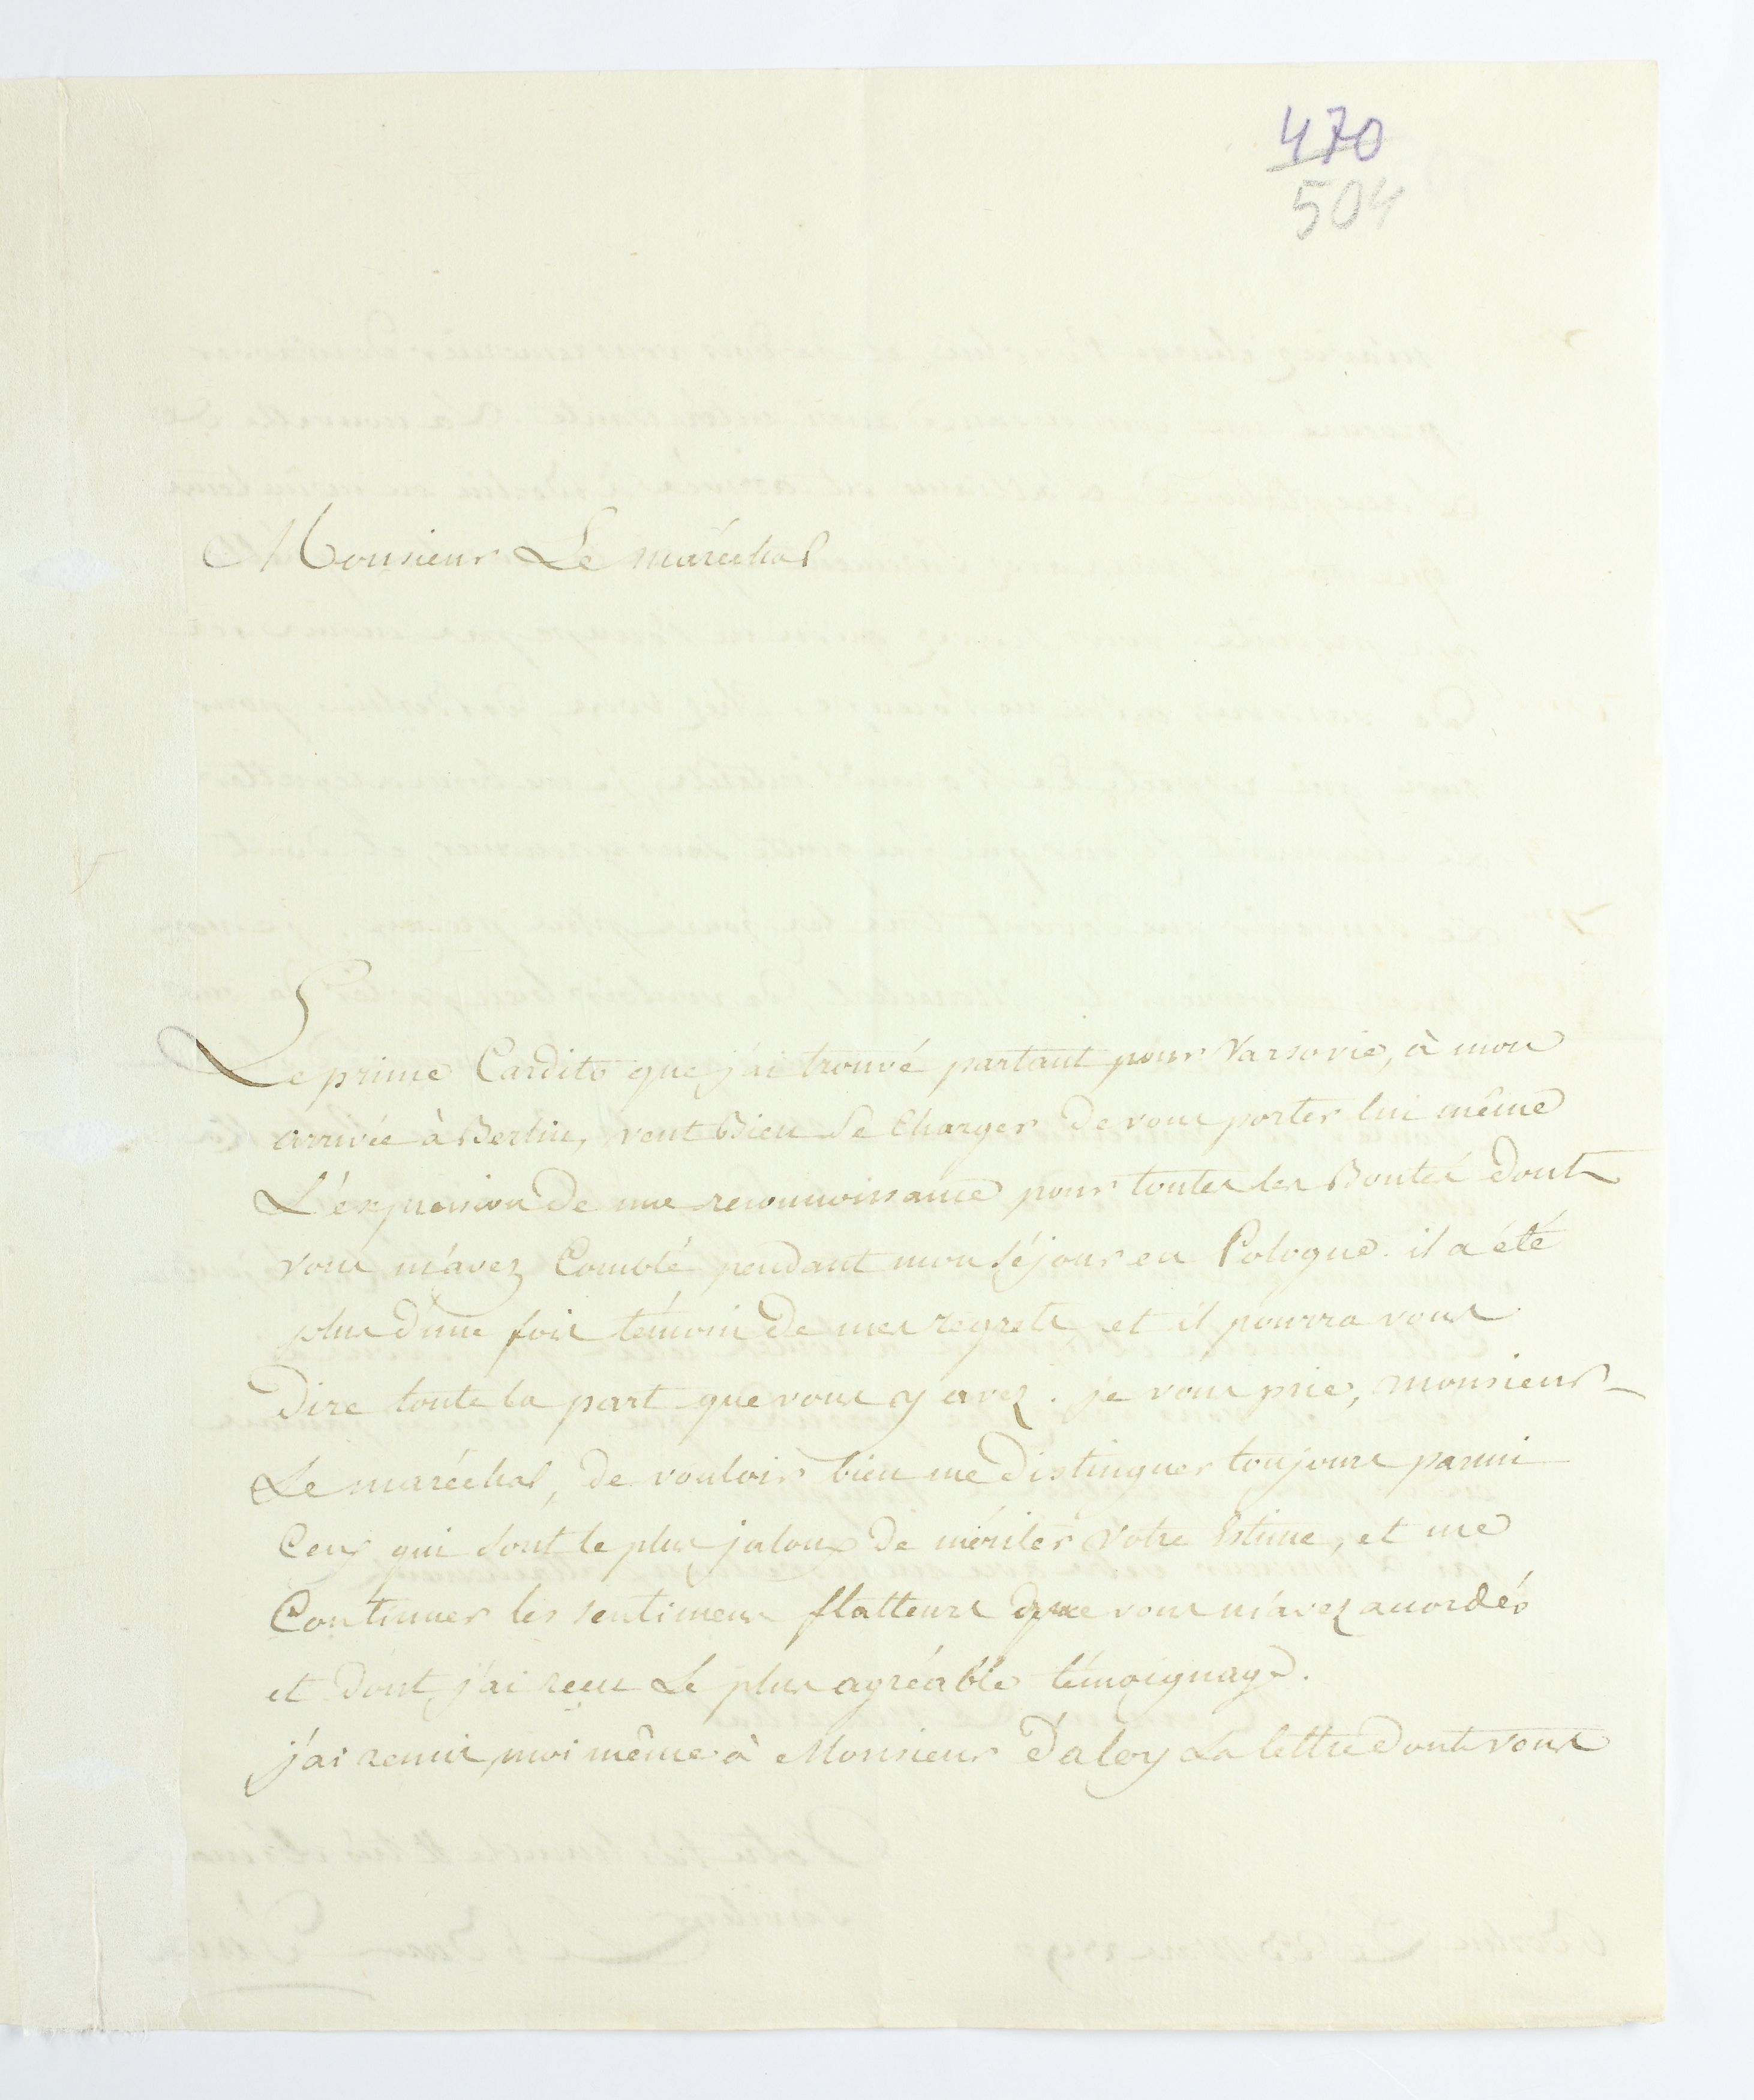 470
504
Monsieur Le maréchal
Le prince Cardito que j'ai trouvé partant pour Varsovie, à mon
arrivée à Berlin, veut Bien Se Charger De vous porter lui même
L'expression De ma reconnoissance pour toutes les Bontés Dont
vous m'avez Comblé pendant mon Séjour en Pologne. il a été
plus d'une fois témoin De mes regrets, et il pourra vous
Dire toute la part que vous y avez. je vous prie, Monsieur
Le maréchal, De vouloir bien me Distinguer toujours parmi
Ceux qui sont le plus jaloux De mériter Votre Estime, et me
Continuer les sentimens flatteurs que vous m'avez accordés
et Dont j'ai reçu Le plus agréable témoignage.
j'ai remis moi même à Monsieur Daloy La lettre Dont vous